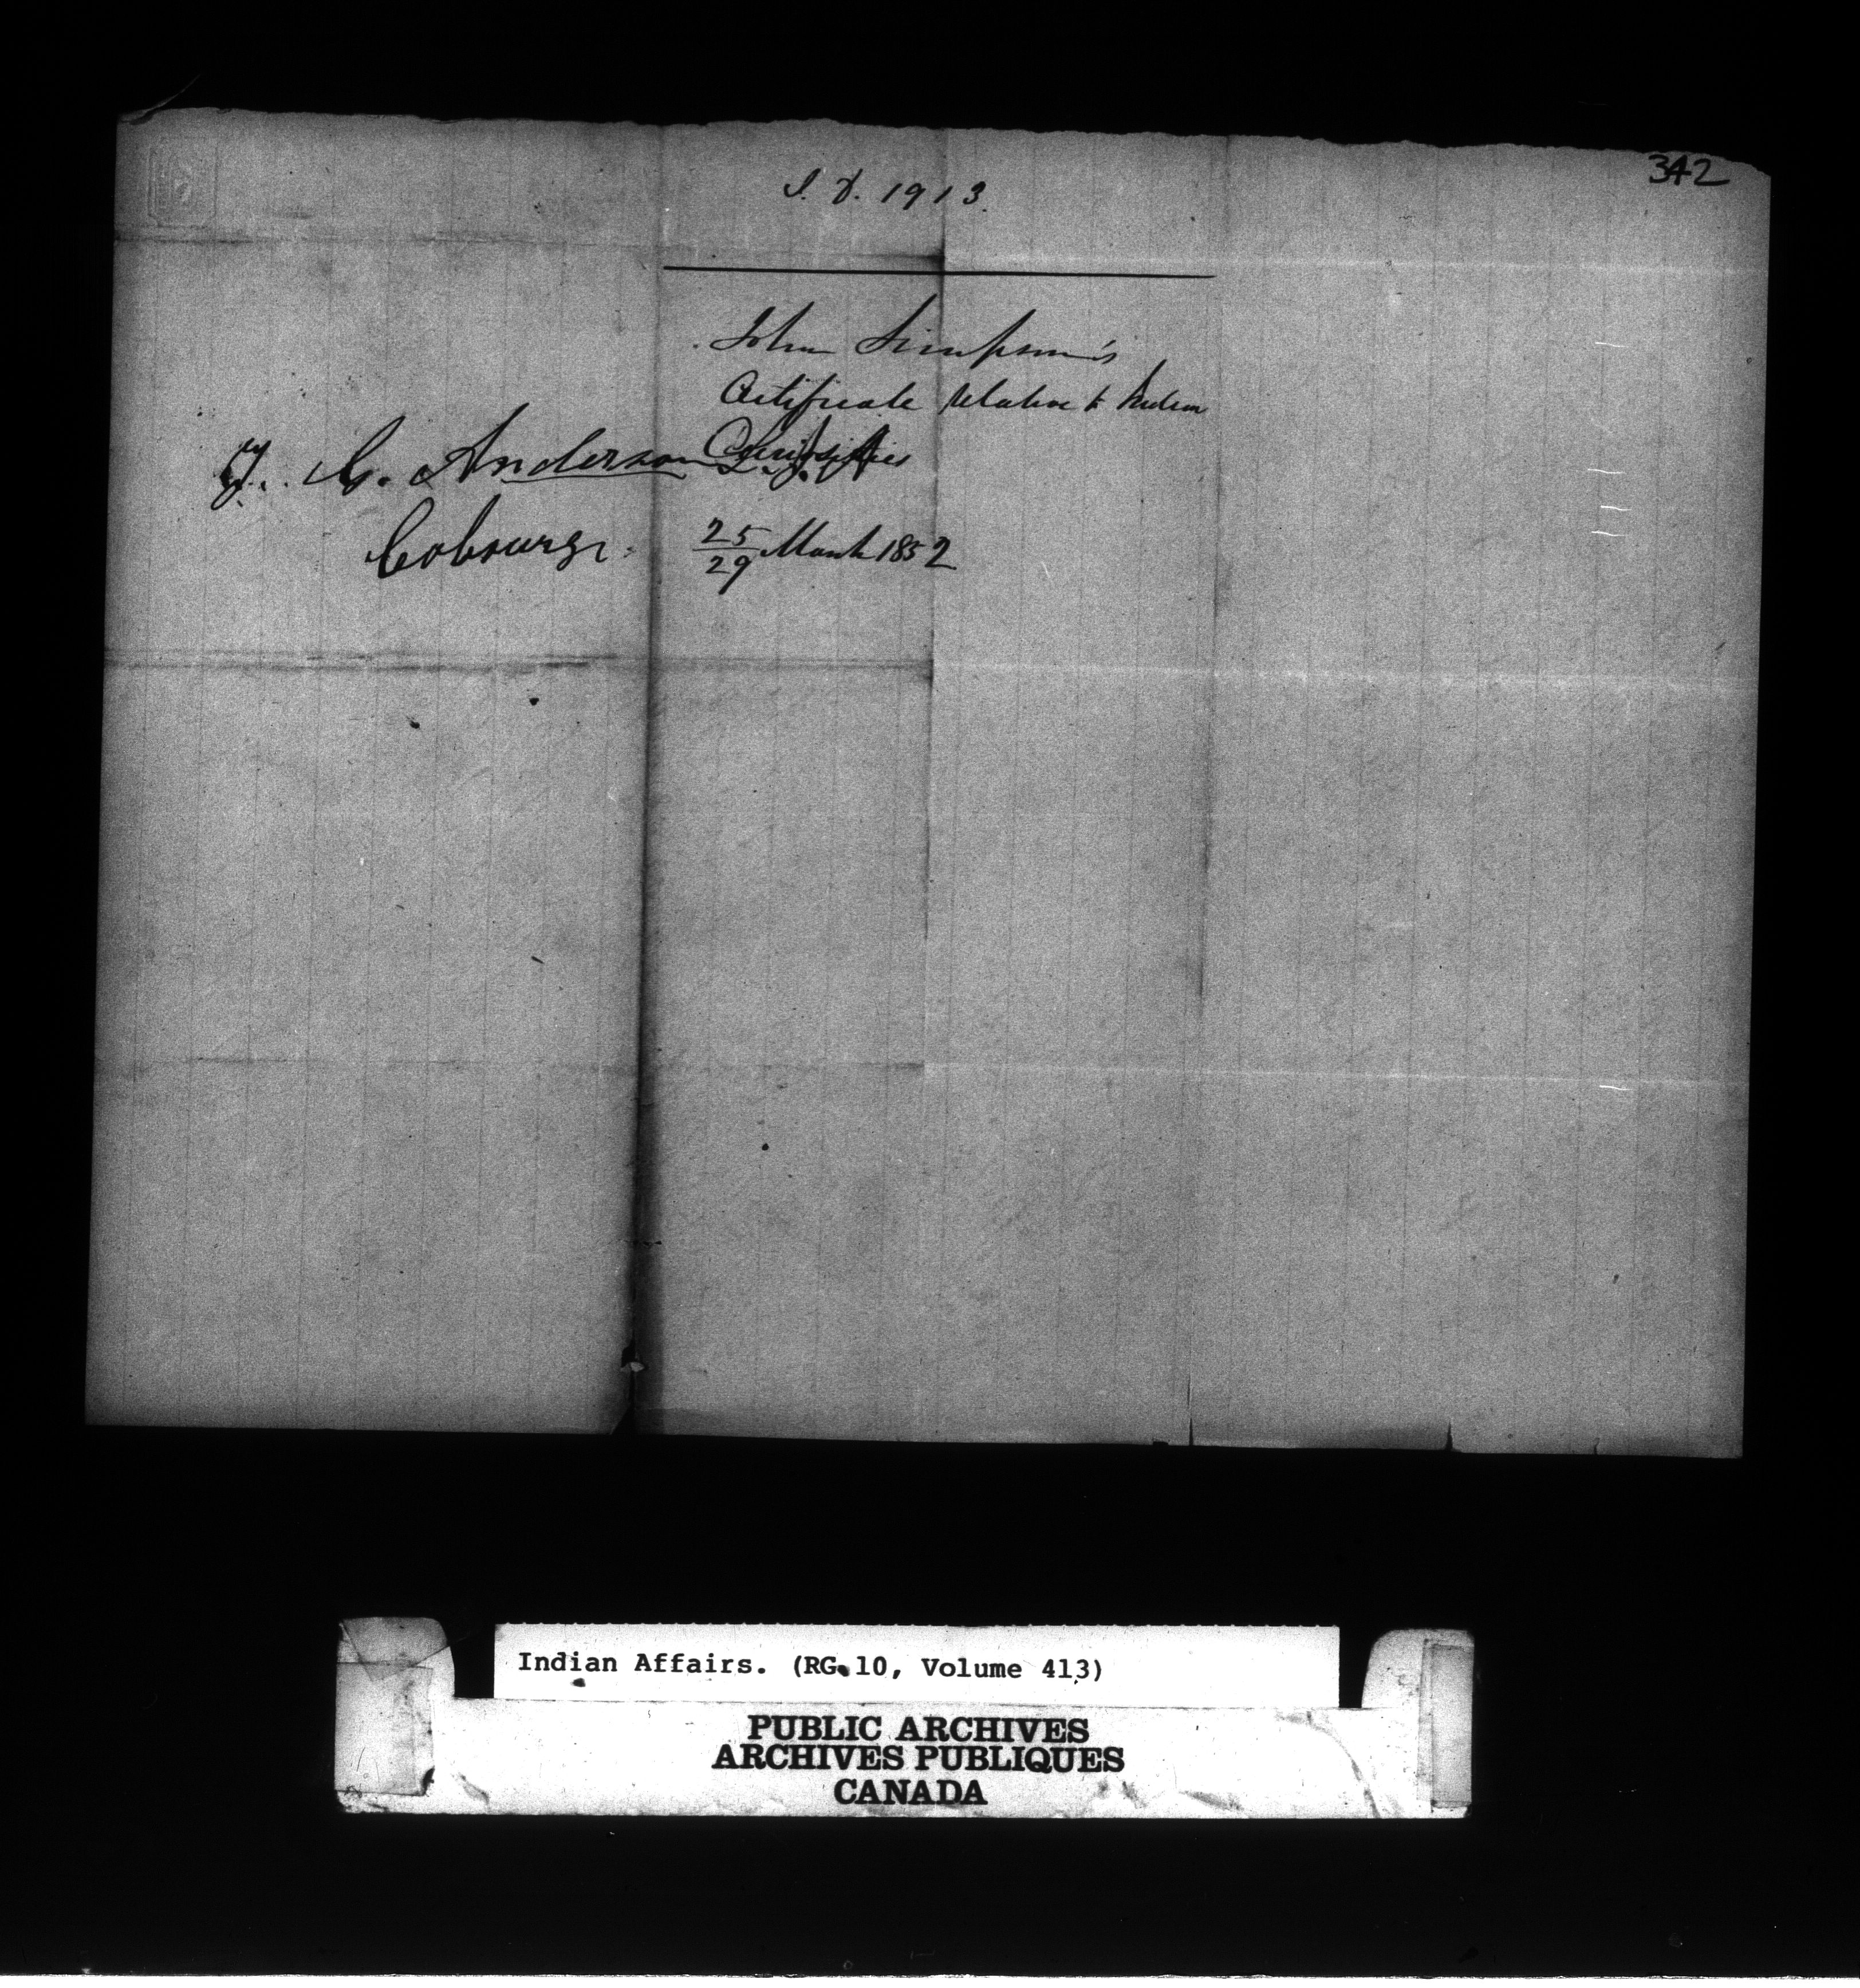 342
I. D. 1913.
John Simpson's
Certificate relative to Indian
Curiosities
T. G. Anderson Esqr
Cobourg.
25/29 March 1852
Indian Affairs. (RG.10, Volume 413)
PUBLIC ARCHIVES
ARCHIVES PUBLIQUES
CANADA